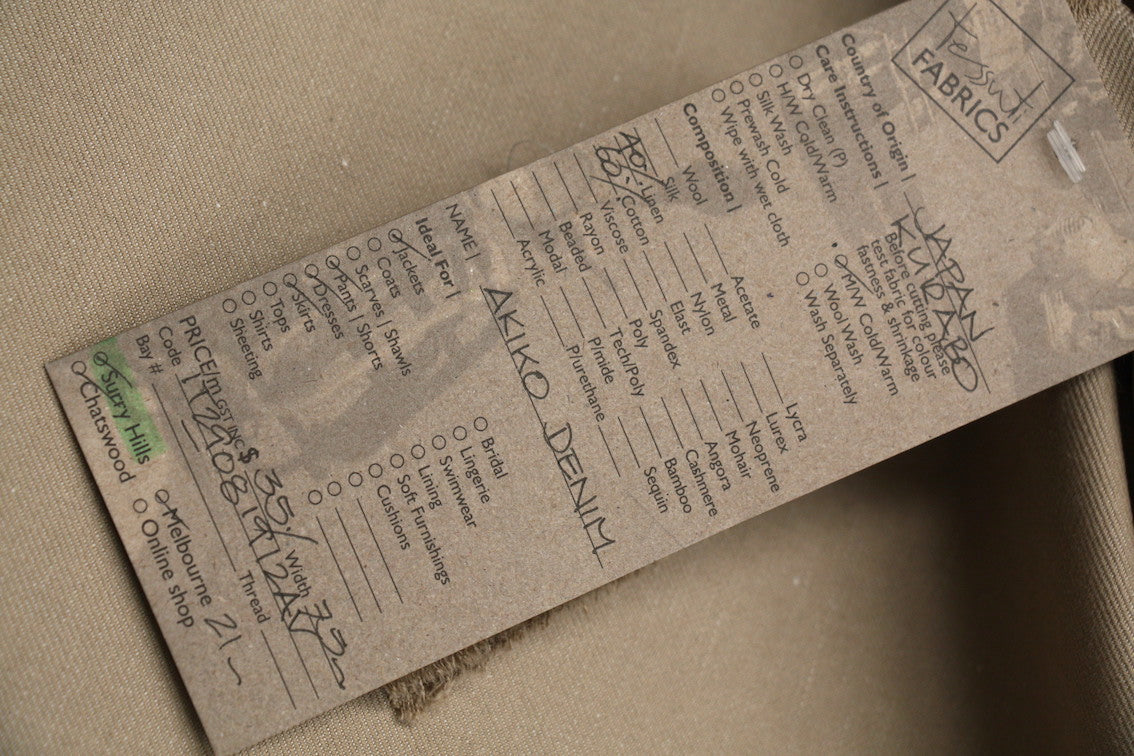 tessuti
FABRICS
Country of Origin | JAPAN
KURABO
Care Instructions |
Before cutting please
test fabric for colour
fastness & shrinkage
Dry Clean (P)
H/W Cold/Warm
Silk Wash
Prewash Cold
Wipe with wet cloth
M/W Cold/Warm
Wool Wash
Wash Separately
Composition |
Wool
Silk
40% Linen
60% Cotton
Viscose
Rayon
Beaded
Modal
Acrylic
Acetate
Metal
Nylon
Elast
Spandex
Poly
Tech/Poly
P/mide
P/urethane
Lycra
Lurex
Neoprene
Mohair
Angora
Cashmere
Bamboo
Sequin
NAME | AKIKO DENIM
Ideal For |
Jackets
Coats
Scarves | Shawls
Pants | Shorts
Dresses
Skirts
Tops
Shirts
Sheeting
Bridal
Lingerie
Swimwear
Lining
Soft Furnishings
Cushions
PRICE/m GST INC $ 35/ Width
Code
Thread
Bay #
Surry Hills
Chatswood
Melbourne 21
Online shop